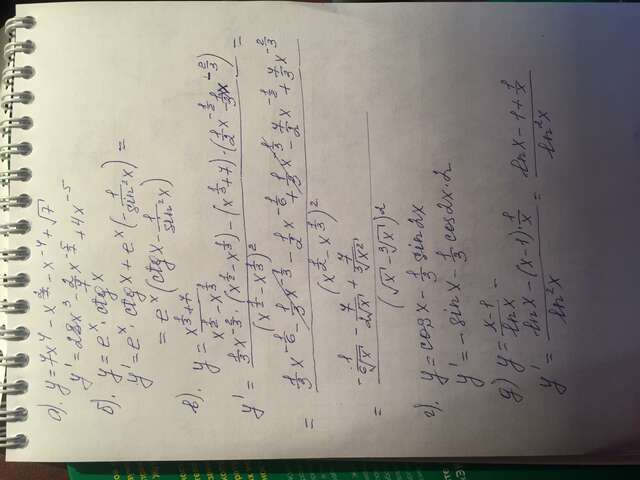 а). y = 7x⁴ - x^(5/7) - x⁻⁴ + √7
y' = 28x³ - 5/7 x^(-2/7) + 4x⁻⁵
б). y = eˣ · ctgx
y' = eˣ · ctgx + eˣ(-1/sin²x) =
= eˣ(ctgx - 1/sin²x)
в). y = (x^(1/3) + 7)/(x^(1/2) - x^(1/3))
y' = (1/3 x^(-2/3) · (x^(1/2) - x^(1/3)) - (x^(1/3) + 7) · (1/2 x^(-1/2) - 1/3 x^(-2/3)))/(x^(1/2) - x^(1/3))² =
= (1/3 x^(-1/6) - 1/3 x^(-1/3) - 1/2 x^(-1/6) + 1/3 x^(-1/3) - 7/2 x^(-1/2) + 7/3 x^(-2/3))/(x^(1/2) - x^(1/3))²
= (-1/⁶√x - 7/2√x + 7/3∛x²)/(√x - ∛x)²
г). y = cosx - 1/3 sin2x
y' = -sinx - 1/3 cos2x · 2
д) y = (x-1)/lnx =
y' = (lnx - (x-1) · 1/x)/ln²x = (lnx - 1 + 1/x)/ln²x